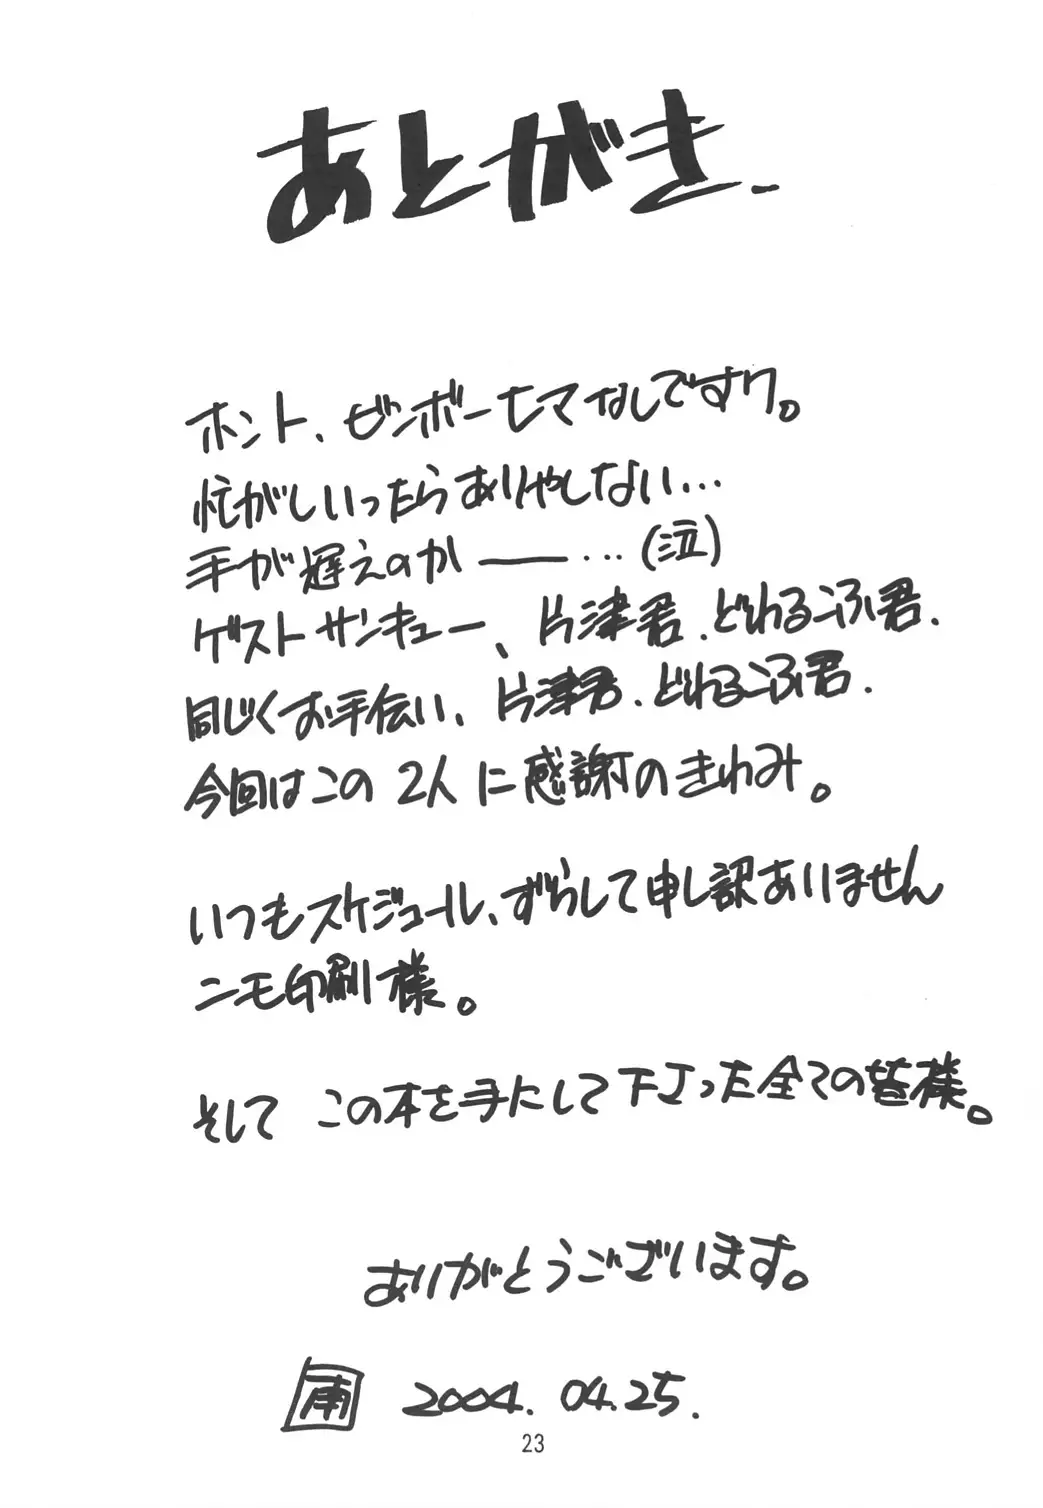 あとがき
ホント、ビンボーヒマなしですワ。
忙がしいったらありゃしない…
手が遅えのか──…(泣)
ゲストサンキュー、片津君、どわるこふ君、
同じくお手伝い、片津君、どわるこふ君、
今回はこの2人に感謝のきわみ。
いつもスケジュール、ずらして申し訳ありません
ニモ印刷様。
そして この本を手にして下さった全ての皆様。
ありがとうございます。
南 2004.04.25.
23